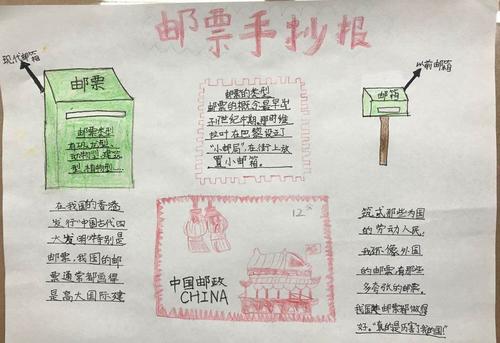 邮票手抄报
现代邮箱
邮票
邮票类型
有珍、龙型、
动物型、建筑
型、植物型……
邮票的类型
邮票的概念最早出
于17世纪中期。那时维
拉叶在巴黎设立了
“小邮局”,在街上放
置小邮箱。
以前邮箱
邮箱
在我国的香港
发行“中国古代四
大发明”特别是
邮票,我国的邮
票通常都画得
是高大国际建
12分
中国邮政
CHINA
筑,式那些为国
的劳动人民,
我不像外国
的邮票有那些
多夸张的邮票。
我国邮票都做得
好。“真的是厉害了我的国!”